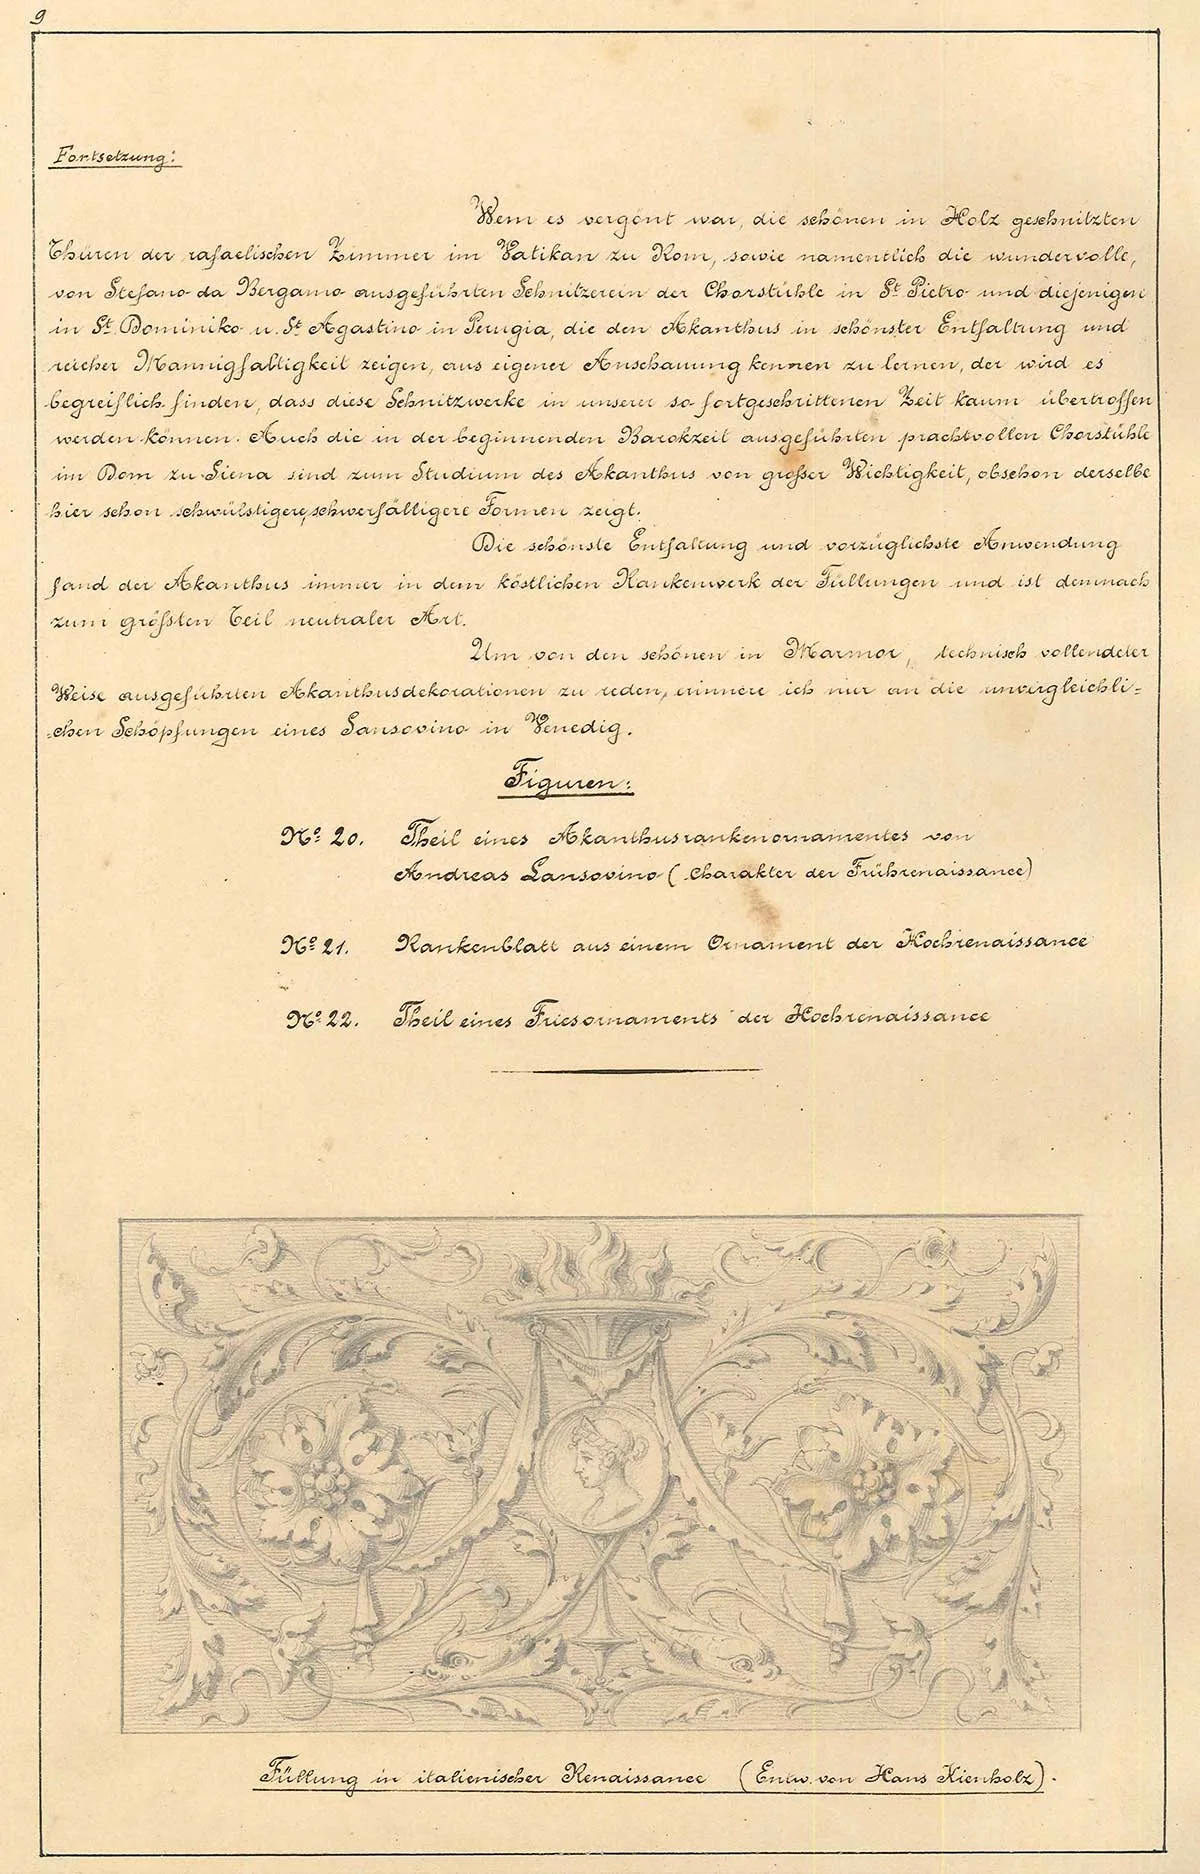 9
Fortsetzung:
Wem es vergönt war, die schönen in Holz geschnitzten
Thüren der rafaelischen Zimmer im Vatikan zu Rom, sowie namentlich die wundervolle,
von Stefano da Bergamo ausgeführten Schnitzerein der Chorstühle in St. Pietro und diejenigen
in St. Dominiko u. St. Agastino in Perugia, die den Akanthus in schönster Entfaltung und
reicher Mannigfaltigkeit zeigen, aus eigener Anschauung kennen zu lernen, der wird es
begreiflich finden, dass diese Schnitzwerke in unserer so fortgeschrittenen Zeit kaum übertroffen
werden können. Auch die in der beginnenden Barokzeit ausgeführten prachtvollen Chorstühle
im Dom zu Siena sind zum Studium des Akanthus von großer Wichtigkeit, obschon derselbe
hier schon schwülstigere, schwerfälligere Formen zeigt.
Die schönste Entfaltung und vorzüglichste Anwendung
fand der Akanthus immer in dem köstlichen Rankenwerk der Füllungen und ist demnach
zum größten Teil neutraler Art.
Um von den schönen in Marmor, technisch vollendeter
Weise ausgeführten Akanthusdekorationen zu reden, erinnere ich nur an die unvergleichli-
-chen Schöpfungen eines Sansovino in Venedig.
Figuren:
No. 20. Theil eines Akanthusrankenornamentes von
Andreas Sansovino (Charakter der Frührenaissance)
No. 21. Rankenblatt aus einem Ornament der Hochrenaissance
No. 22. Theil eines Friesornaments der Hochrenaissance
Füllung in italienischer Renaissance (Entw. von Hans Kienholz).